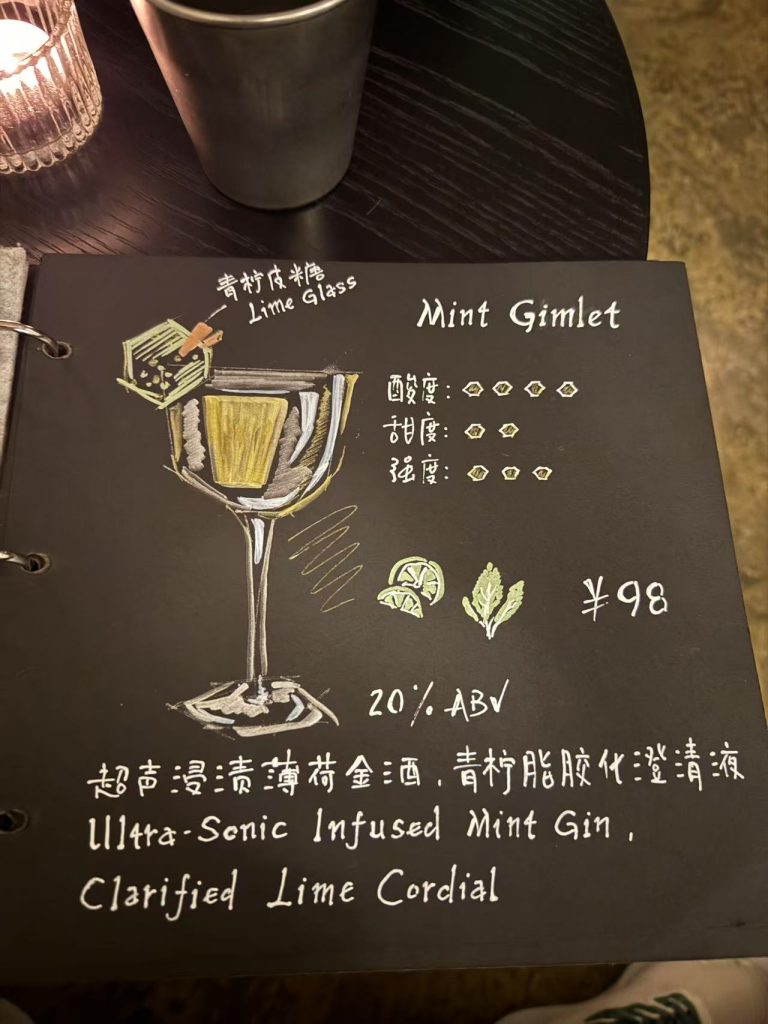 青柠皮糖
Lime Glass
Mint Gimlet
酸度:
甜度:
强度:
¥98
20% ABV
超声浸渍薄荷金酒,青柠脂胶化澄清液
Ultra-Sonic Infused Mint Gin,
Clarified Lime Cordial